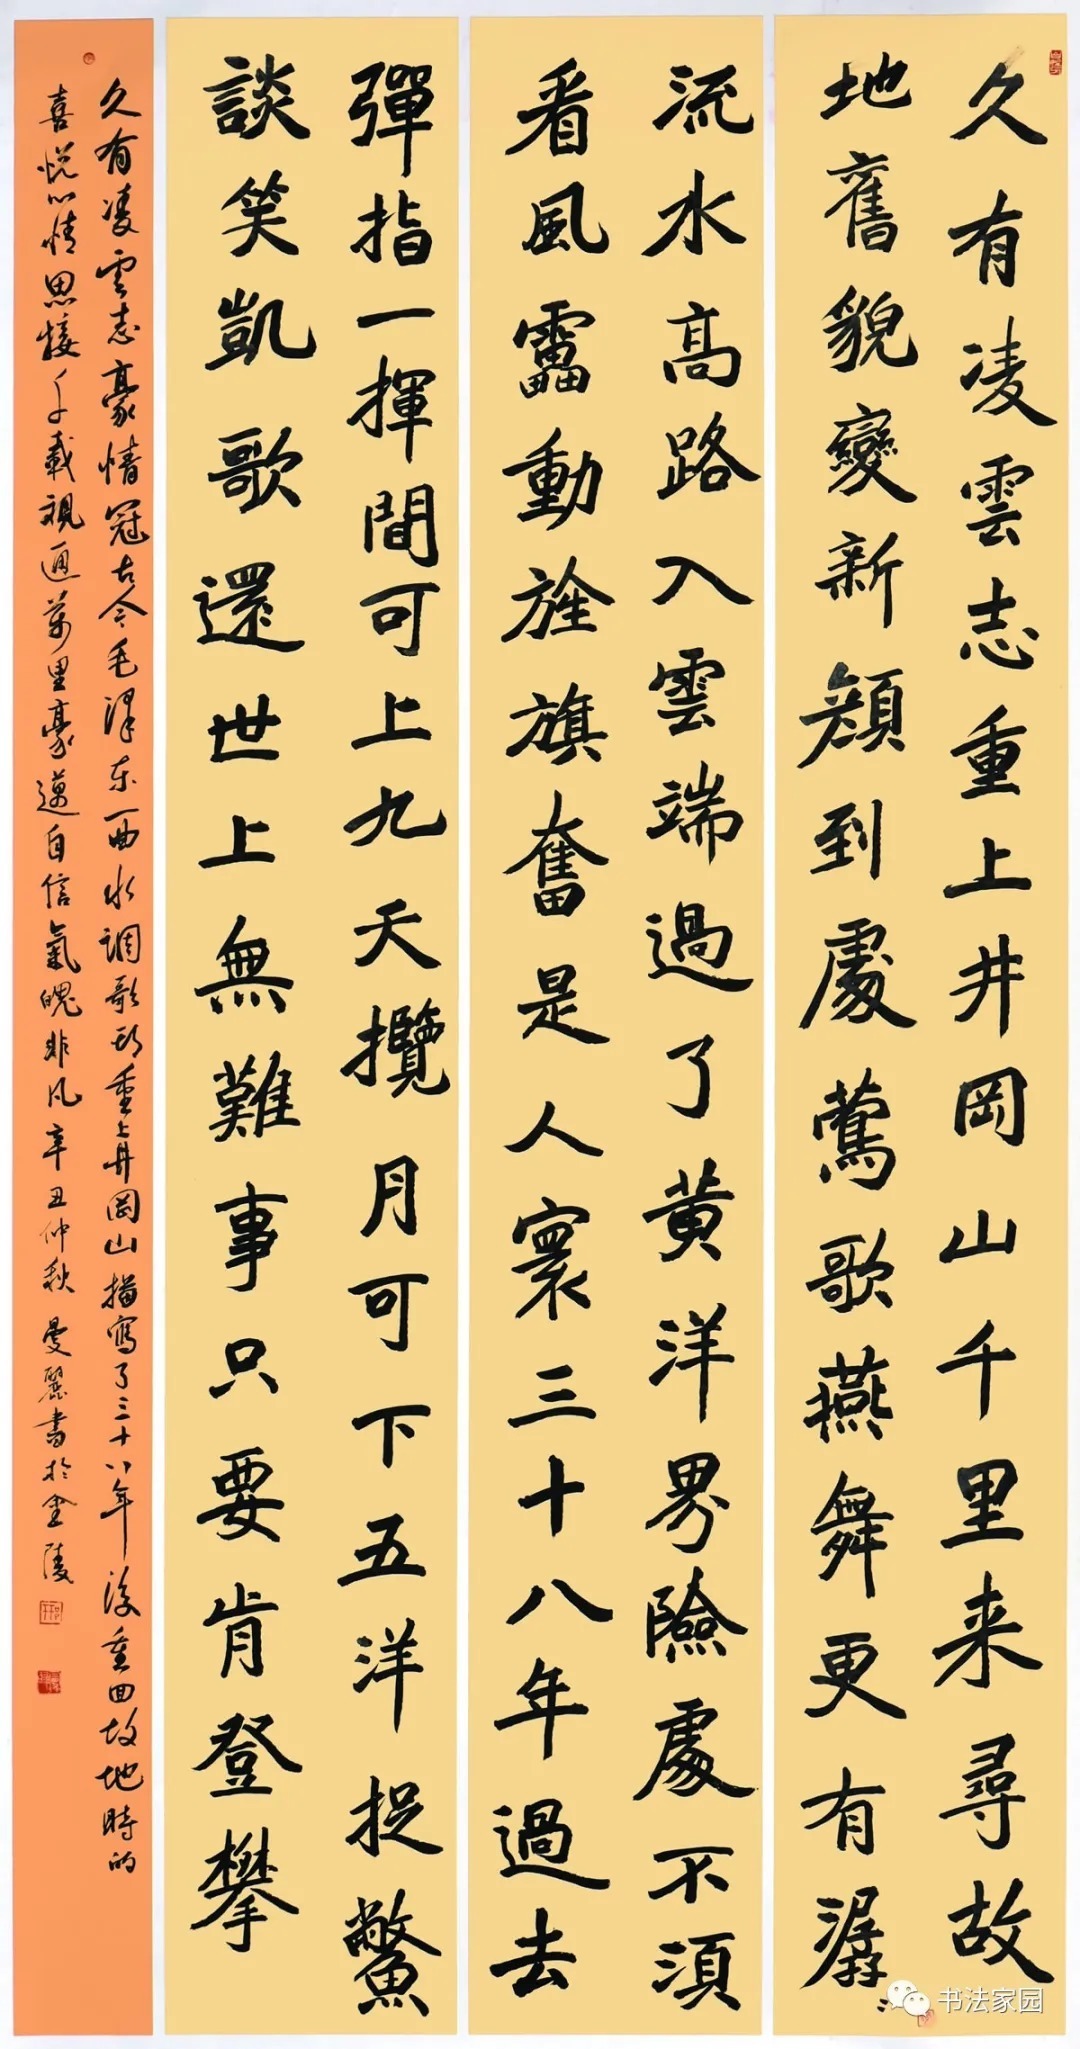 久有凌雲志重上井岡山千里来尋故
地舊貌變新顔到處鶯歌燕舞更有潺〻
流水高路入雲端過了黄洋界險處不須
看風靁動旌旗奮是人寰三十八年過去
彈指一揮間可上九天攬月可下五洋捉鱉
談笑凱歌還世上無難事只要肯登攀
久有凌雲志豪情冠古今毛澤东一曲水调歌头重上井岡山描寫了三十八年後重回故地時的
喜悦心情思接千載視通萬里豪邁自信氣魄非凡辛丑仲秋 曼麗書於金陵
书法家园